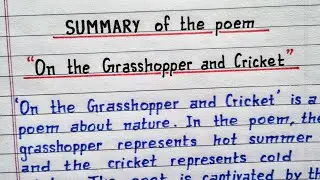 SUMMARY of the poem
"On the Grasshopper and Cricket"
'On the Grasshopper and Cricket' is a
poem about nature. In the poem, the
grasshopper represents hot summer
and the cricket represents cold
The poet is captivated by th